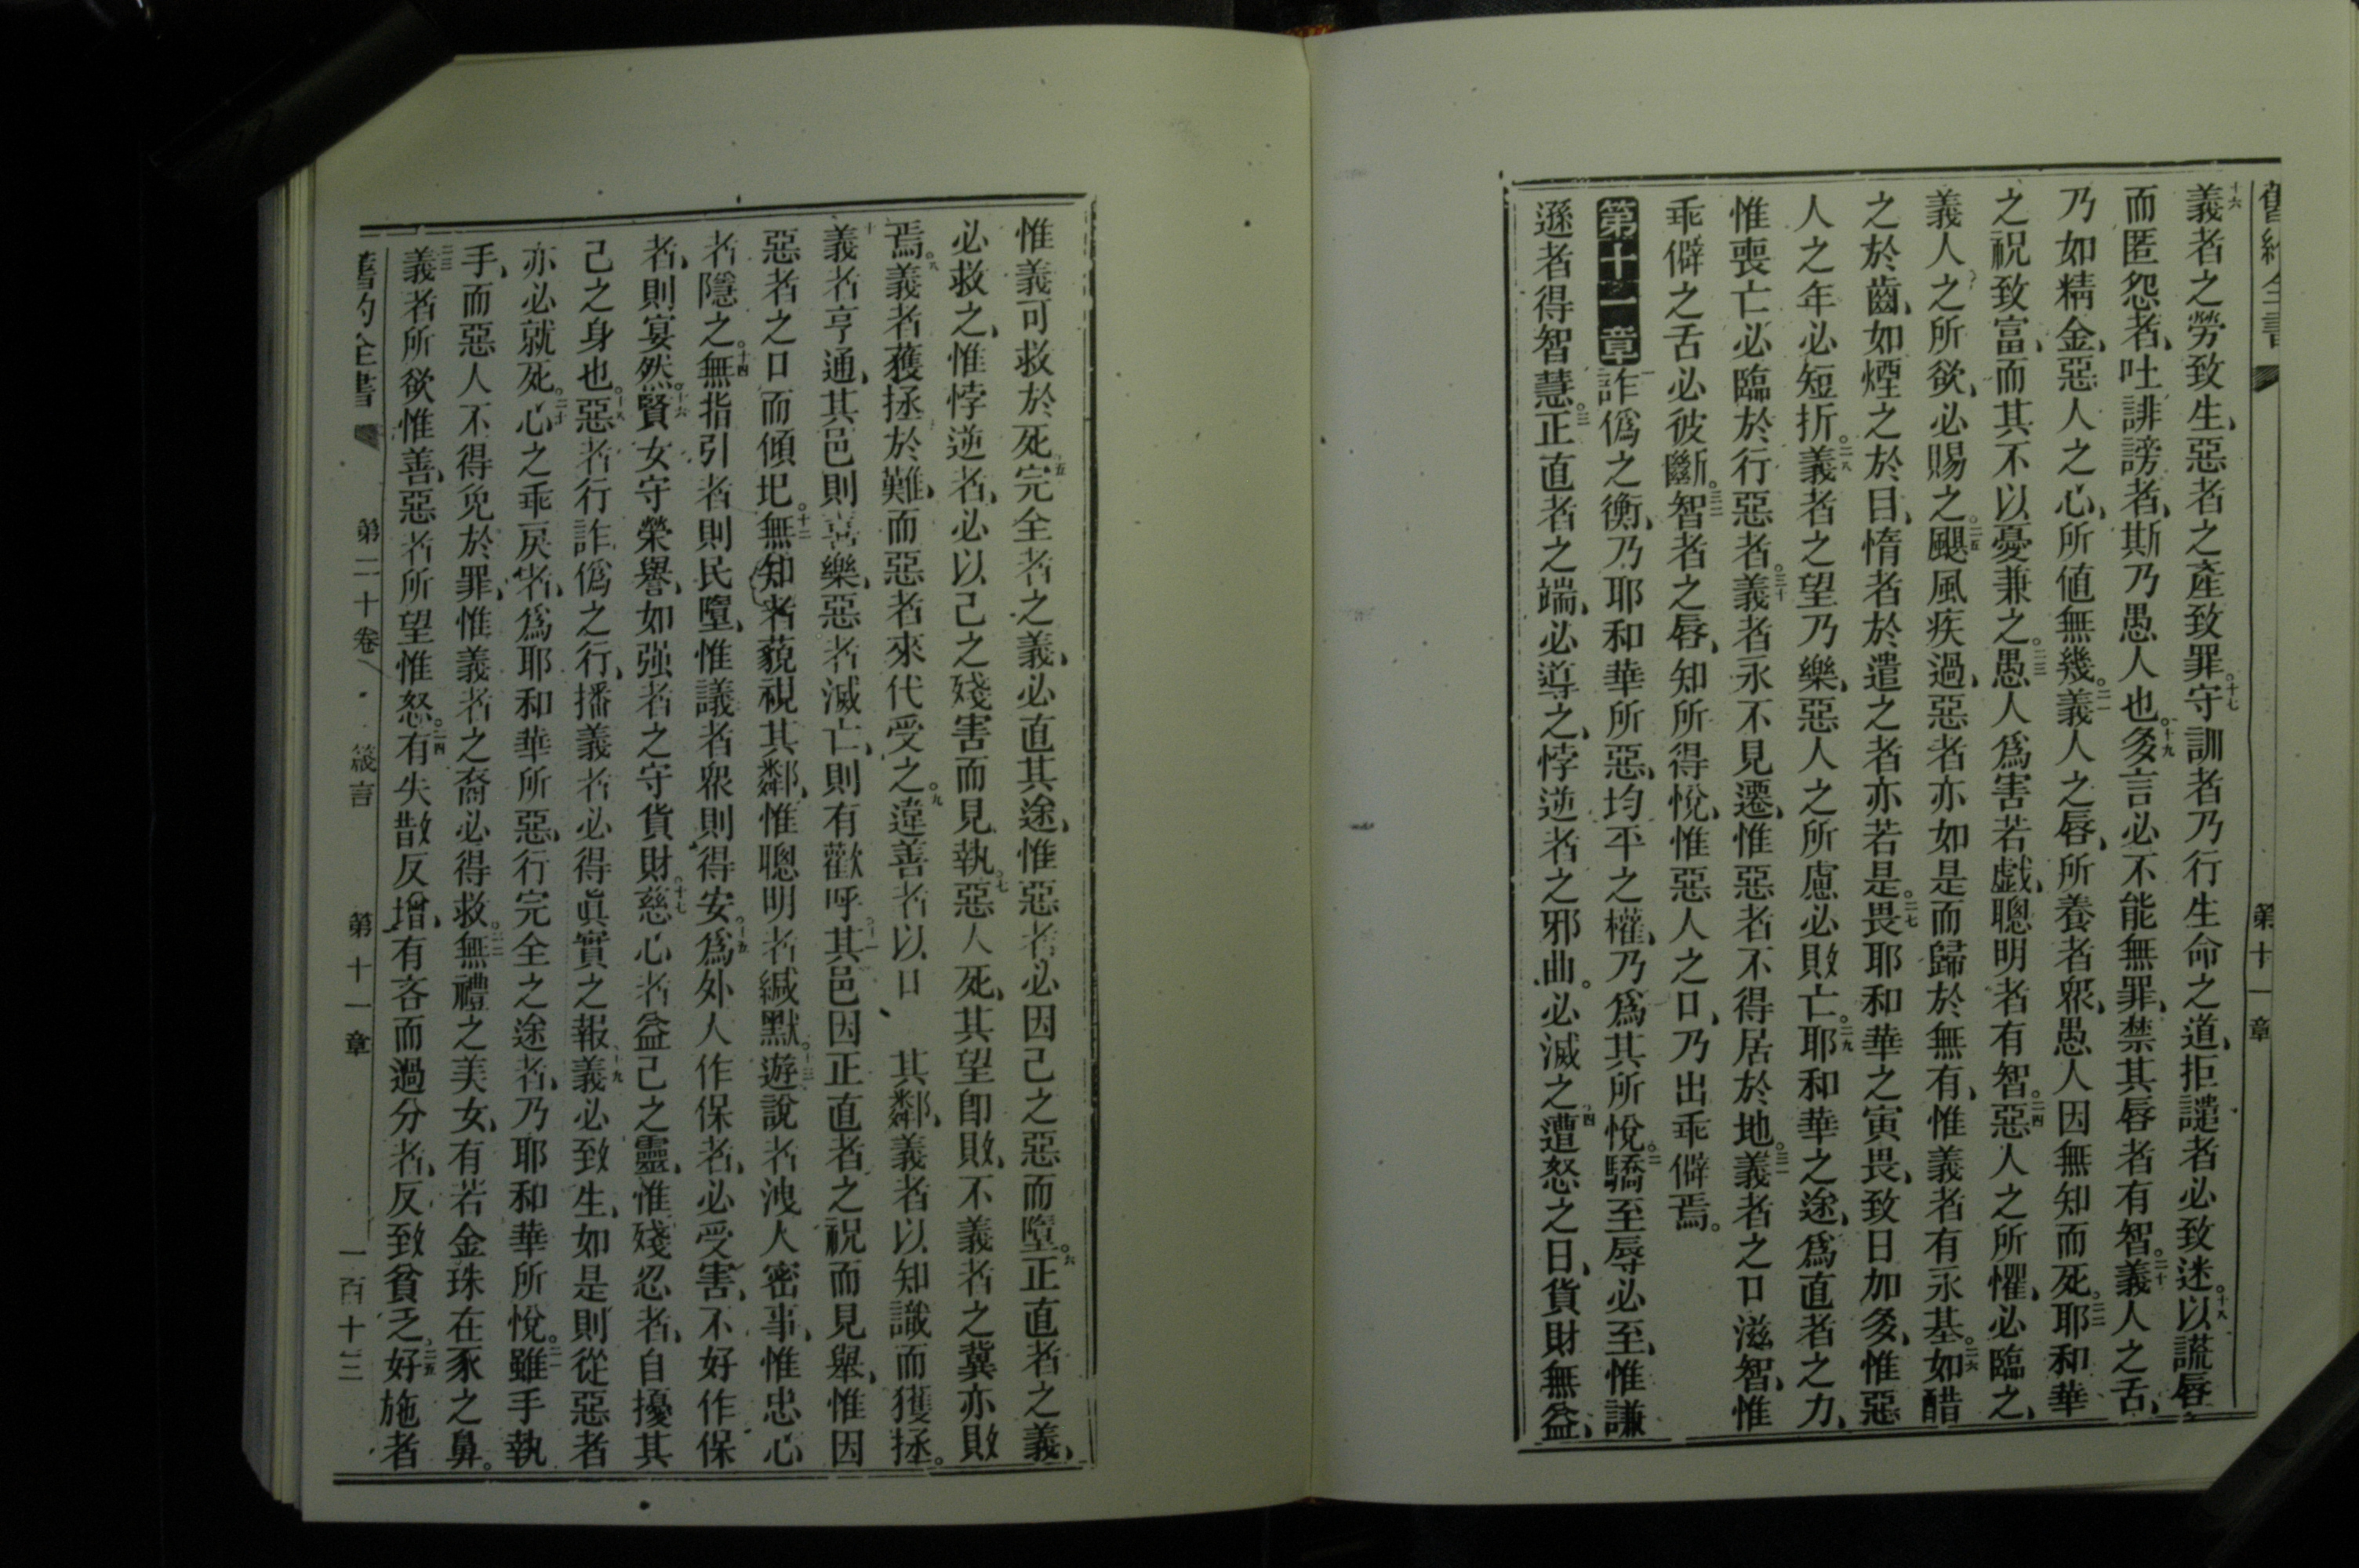 舊約全書 第十一章
十六義者之勞致生、惡者之產致罪。十七守訓者乃行生命之道、拒譴者必致迷。十八以謊唇
而匿怨者、吐誹謗者、斯乃愚人也。十九多言必不能無罪、禁其唇者有智。二十義人之舌、
乃如精金、惡人之心、所值無幾。二一義人之唇、所養者衆、愚人因無知而死。二二耶和華
之祝致富、而其不以憂兼之。二三愚人爲害若戲、聰明者有智。二四惡人之所懼、必臨之、
義人之所欲、必賜之。二五颶風疾過、惡者亦如是而歸於無有、惟義者有永基。二六如醋
之於齒、如煙之於目、惰者於遣之者亦若是。二七畏耶和華之寅畏、致日加多、惟惡
人之年必短折。二八義者之望乃樂、惡人之所慮必敗亡。二九耶和華之途、爲直者之力、
惟喪亡必臨於行惡者。三十義者永不見遷、惟惡者不得居於地。三一義者之口滋智、惟
乖僻之舌必彼斷。三二智者之唇、知所得悅、惟惡人之口、乃出乖僻焉。
第十一章 一詐僞之衡、乃耶和華所惡、均平之權、乃爲其所悅。二驕至辱必至、惟謙
遜者得智慧。三正直者之端、必導之、悖逆者之邪曲。必滅之。四遭怒之日、貨財無益、
惟義可救於死。五完全者之義、必直其途、惟惡者必因己之惡而墮。六正直者之義、
必救之、惟悖逆者、必以己之殘害而見執。七惡人死、其望卽敗、不義者之冀亦敗
焉。八義者獲拯於難、而惡者來代受之。九違善者以口 其鄰、義者以知識而獲拯。
十義者亨通、其邑則喜樂、惡者滅亡、則有歡呼。十一其邑因正直者之祝而見舉、惟因
惡者之口而傾圯。十二無知者藐視其鄰、惟聰明者緘默。十三遊說者洩人密事、惟忠心
者隱之。十四無指引者則民墮、惟議者衆則得安。十五爲外人作保者、必受害、不好作保
者、則宴然。十六賢女守榮譽、如强者之守貨財。十七慈心者益己之靈、惟殘忍者、自擾其
己之身也。十八惡者行詐僞之行、播義者必得眞實之報。十九義必致生、如是則從惡者
亦必就死。二十心之乖戾者、爲耶和華所惡、行完全之途者、乃耶和華所悅。二一雖手執
手、而惡人不得免於罪、惟義者之裔必得救。二二無禮之美女、有若金珠在豕之鼻。
二三義者所欲惟善、惡者所望惟怒。二四有失散反增、有吝而過分者、反致貧乏。二五好施者
舊約全書 第二十卷 箴言 第十一章 一百十三